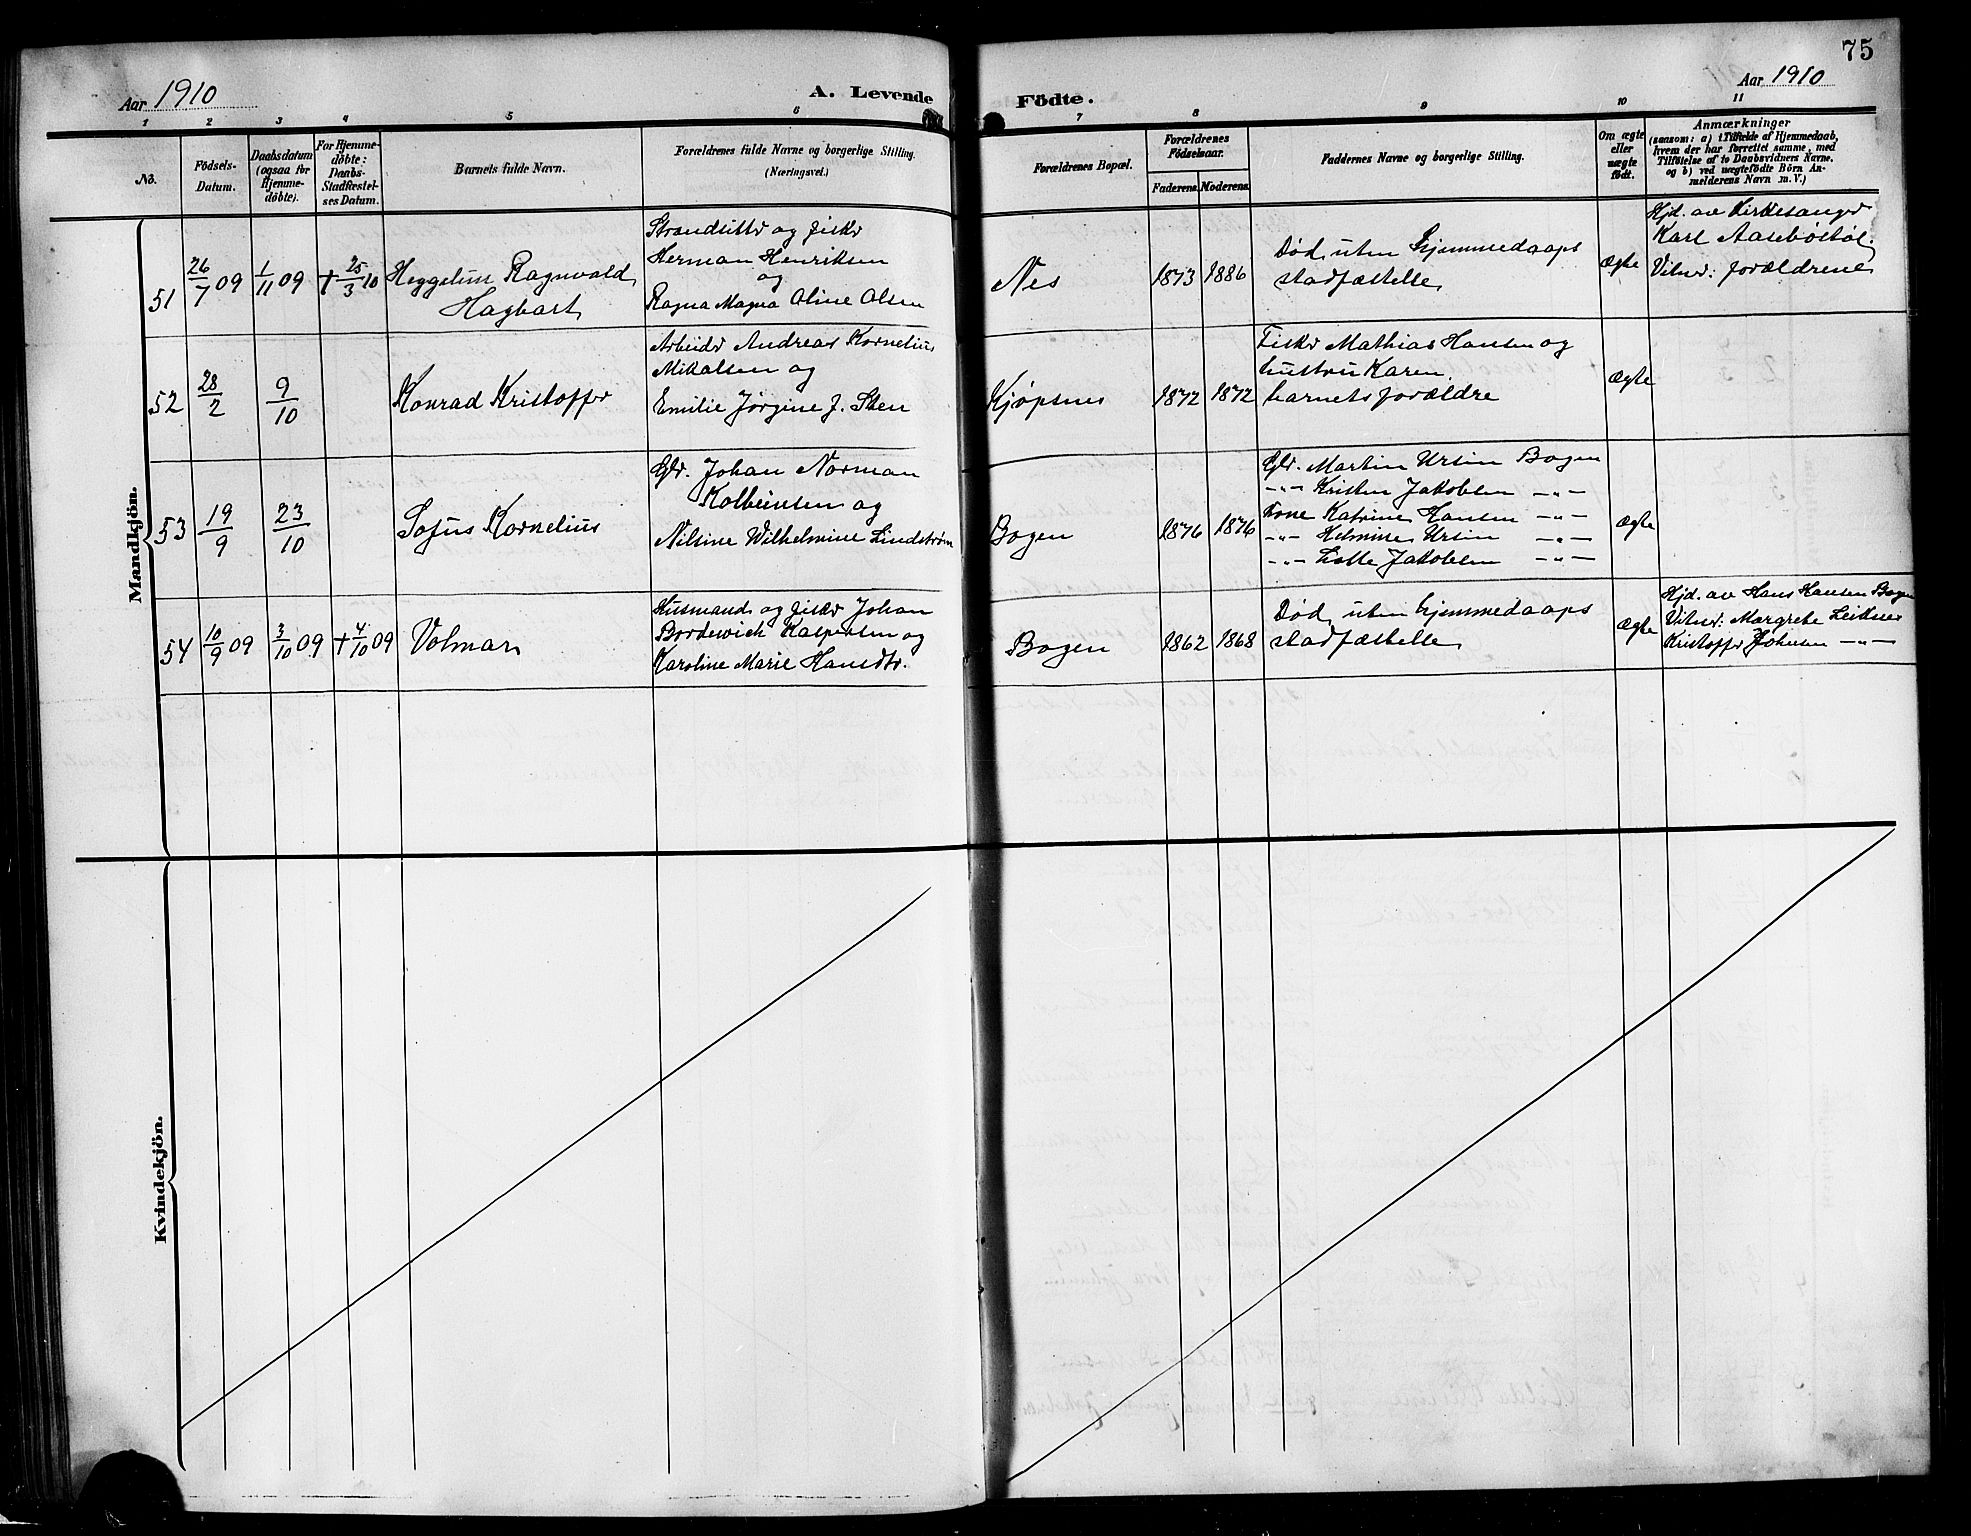 75
Aar 1910
A. Levende
Födte.
Aar 1910
1 2 3 4 5 6 7 8 9 10 11
No.
Födsels-
Datum.
Daabsdatum
(ogsaa for
Hjemme-
døbte).
For Hjemme-
døbte:
Daabs-
Stadfæstel-
ses Datum.
Barnets fulde Navn.
Forældrenes fulde Navne og borgerlige Stilling.
(Næringsvei.)
Forældrenes Bopæl.
Forældrenes
Fødselsaar.
Faderens. Moderens.
Faddernes Navne og borgerlige Stilling.
Om ægte
eller
uægte
født.
Anmærkninger
(saasom: a) i Tilfælde af Hjemmedaab,
hvem der har forrettet samme, med
Tilføielse af to Daabsvidners Navne,
og b) ved uægtefødte Börn An-
melderens Navn m. V.)
Mandkjön.
51
26/7 09
1/11 09
+ 25/3 10
Heggelun Ragnvald
Hagbart
Strandsitter og fisker
Herman Henriksen
og
Ragna Magna Oline Olsen
Nes
1873
1886
Død uten hjemmedaaps
stadfæstelse
Ægte
Hjd. av Kirkesanger
Karl Aasebøstøl.
Vitner: forældrene
52
28/2
9/10
Konrad Kristoffer
Arbeider Andreas Kornelius
Mikalsen og
Emilie Jørgine J. Steen
Kjøpsnes
1872
1872
Fisker Mathias Hansen og
hustru Karen
barnets forældre
ægte
53
19/9
23/10
Sofus Kornelius
Gbr. Johan Norman
Kolbeinsen og
Nilsine Wilhelmine Lindstrøm
Bogen
1876
1876
Gbr. Martin Ursin Bogen
-"- Kristen Jakobsen -"-
Kone Katrine Hansen -"-
-"- Helmine Ursin -"-
-"- Lotte Jakobsen -"-
ægte
54
10/9 09
3/10 09
+ 4/10 09
Volmar
Husmand og fisker Johan
Bordewich Kaspersen og
Karoline Marie Hansdtr.
Bogen
1862
1868
Død uten hjemmedaaps
stadfæstelse
ægte
Hjd. av Hans Hansen Bogen
Vitner: Margrete Leiknes
Kristoffer Johnsen -"-
Kvindekjön.